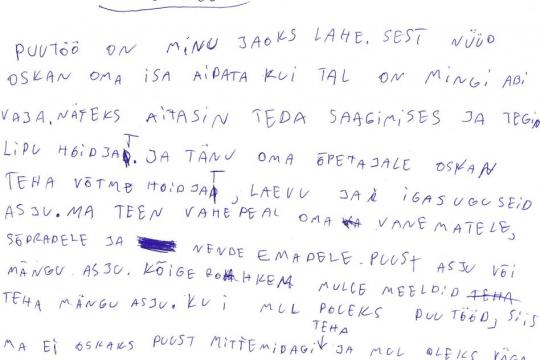 PUUTÖÖ ON MINU JAOKS LAHE. SEST NÜÜD
OSKAN OMA ISA AIDATA KUI TAL ON MINGI ABI
VAJA. NÄTEKS AITASIN TEDA SAAGIMISES JA TEGID
LIPU HOIDJAT. JA TÄNU OMA ÕPETAJALE OSKAN
TEHA VÕTME HOIDJAT, LAEVU JA IGASUGUSEID
ASJU. MA TEEN VAHEPEAL OMA VANEMATELE,
SÕPRADELE JA NENDE EMADELE. PUUST ASJU VÕI
MÄNGU ASJU. KÕIGE ROHKEM MULLE MEELDID TEHA
TEHA MÄNGU ASJU. KUI MUL POLEKS PUUTÖÖD, SIIS
TEHA
MA EI OSKAKS PUUST MITTEMIDAGI JA MUL OLEKS VÄGA